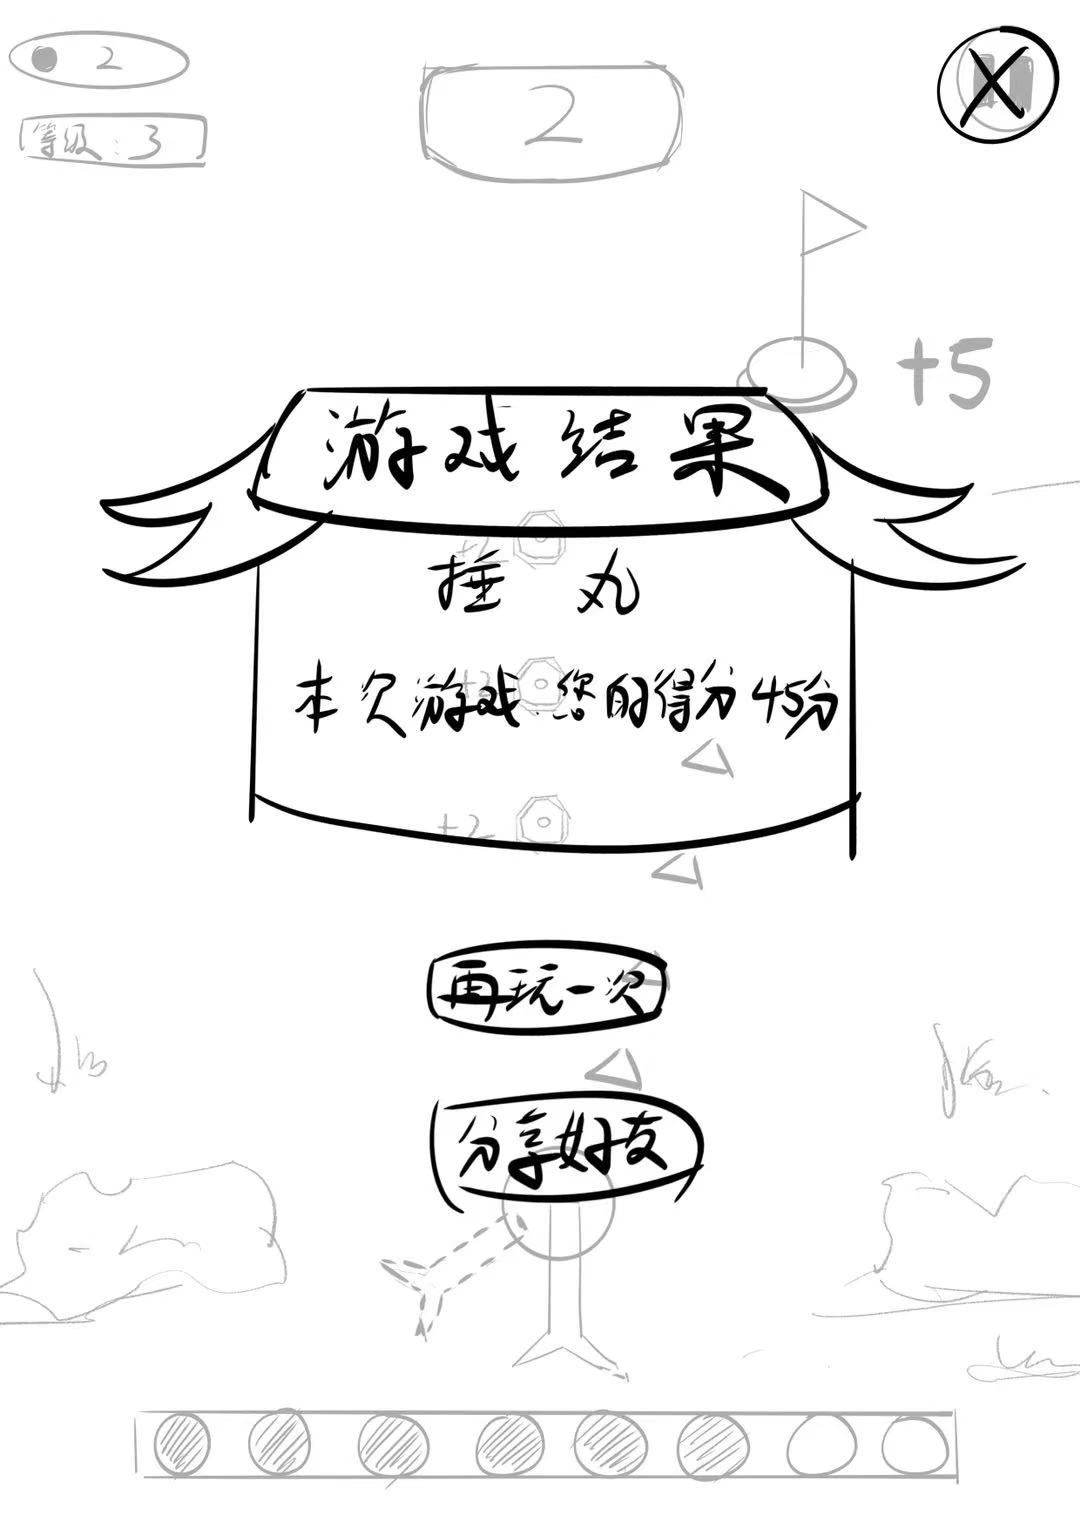 2
等级:3
2
+5
游戏结果
+2
捶丸
+2
本次游戏.您的得分45分
+2
再玩一次
分享好友